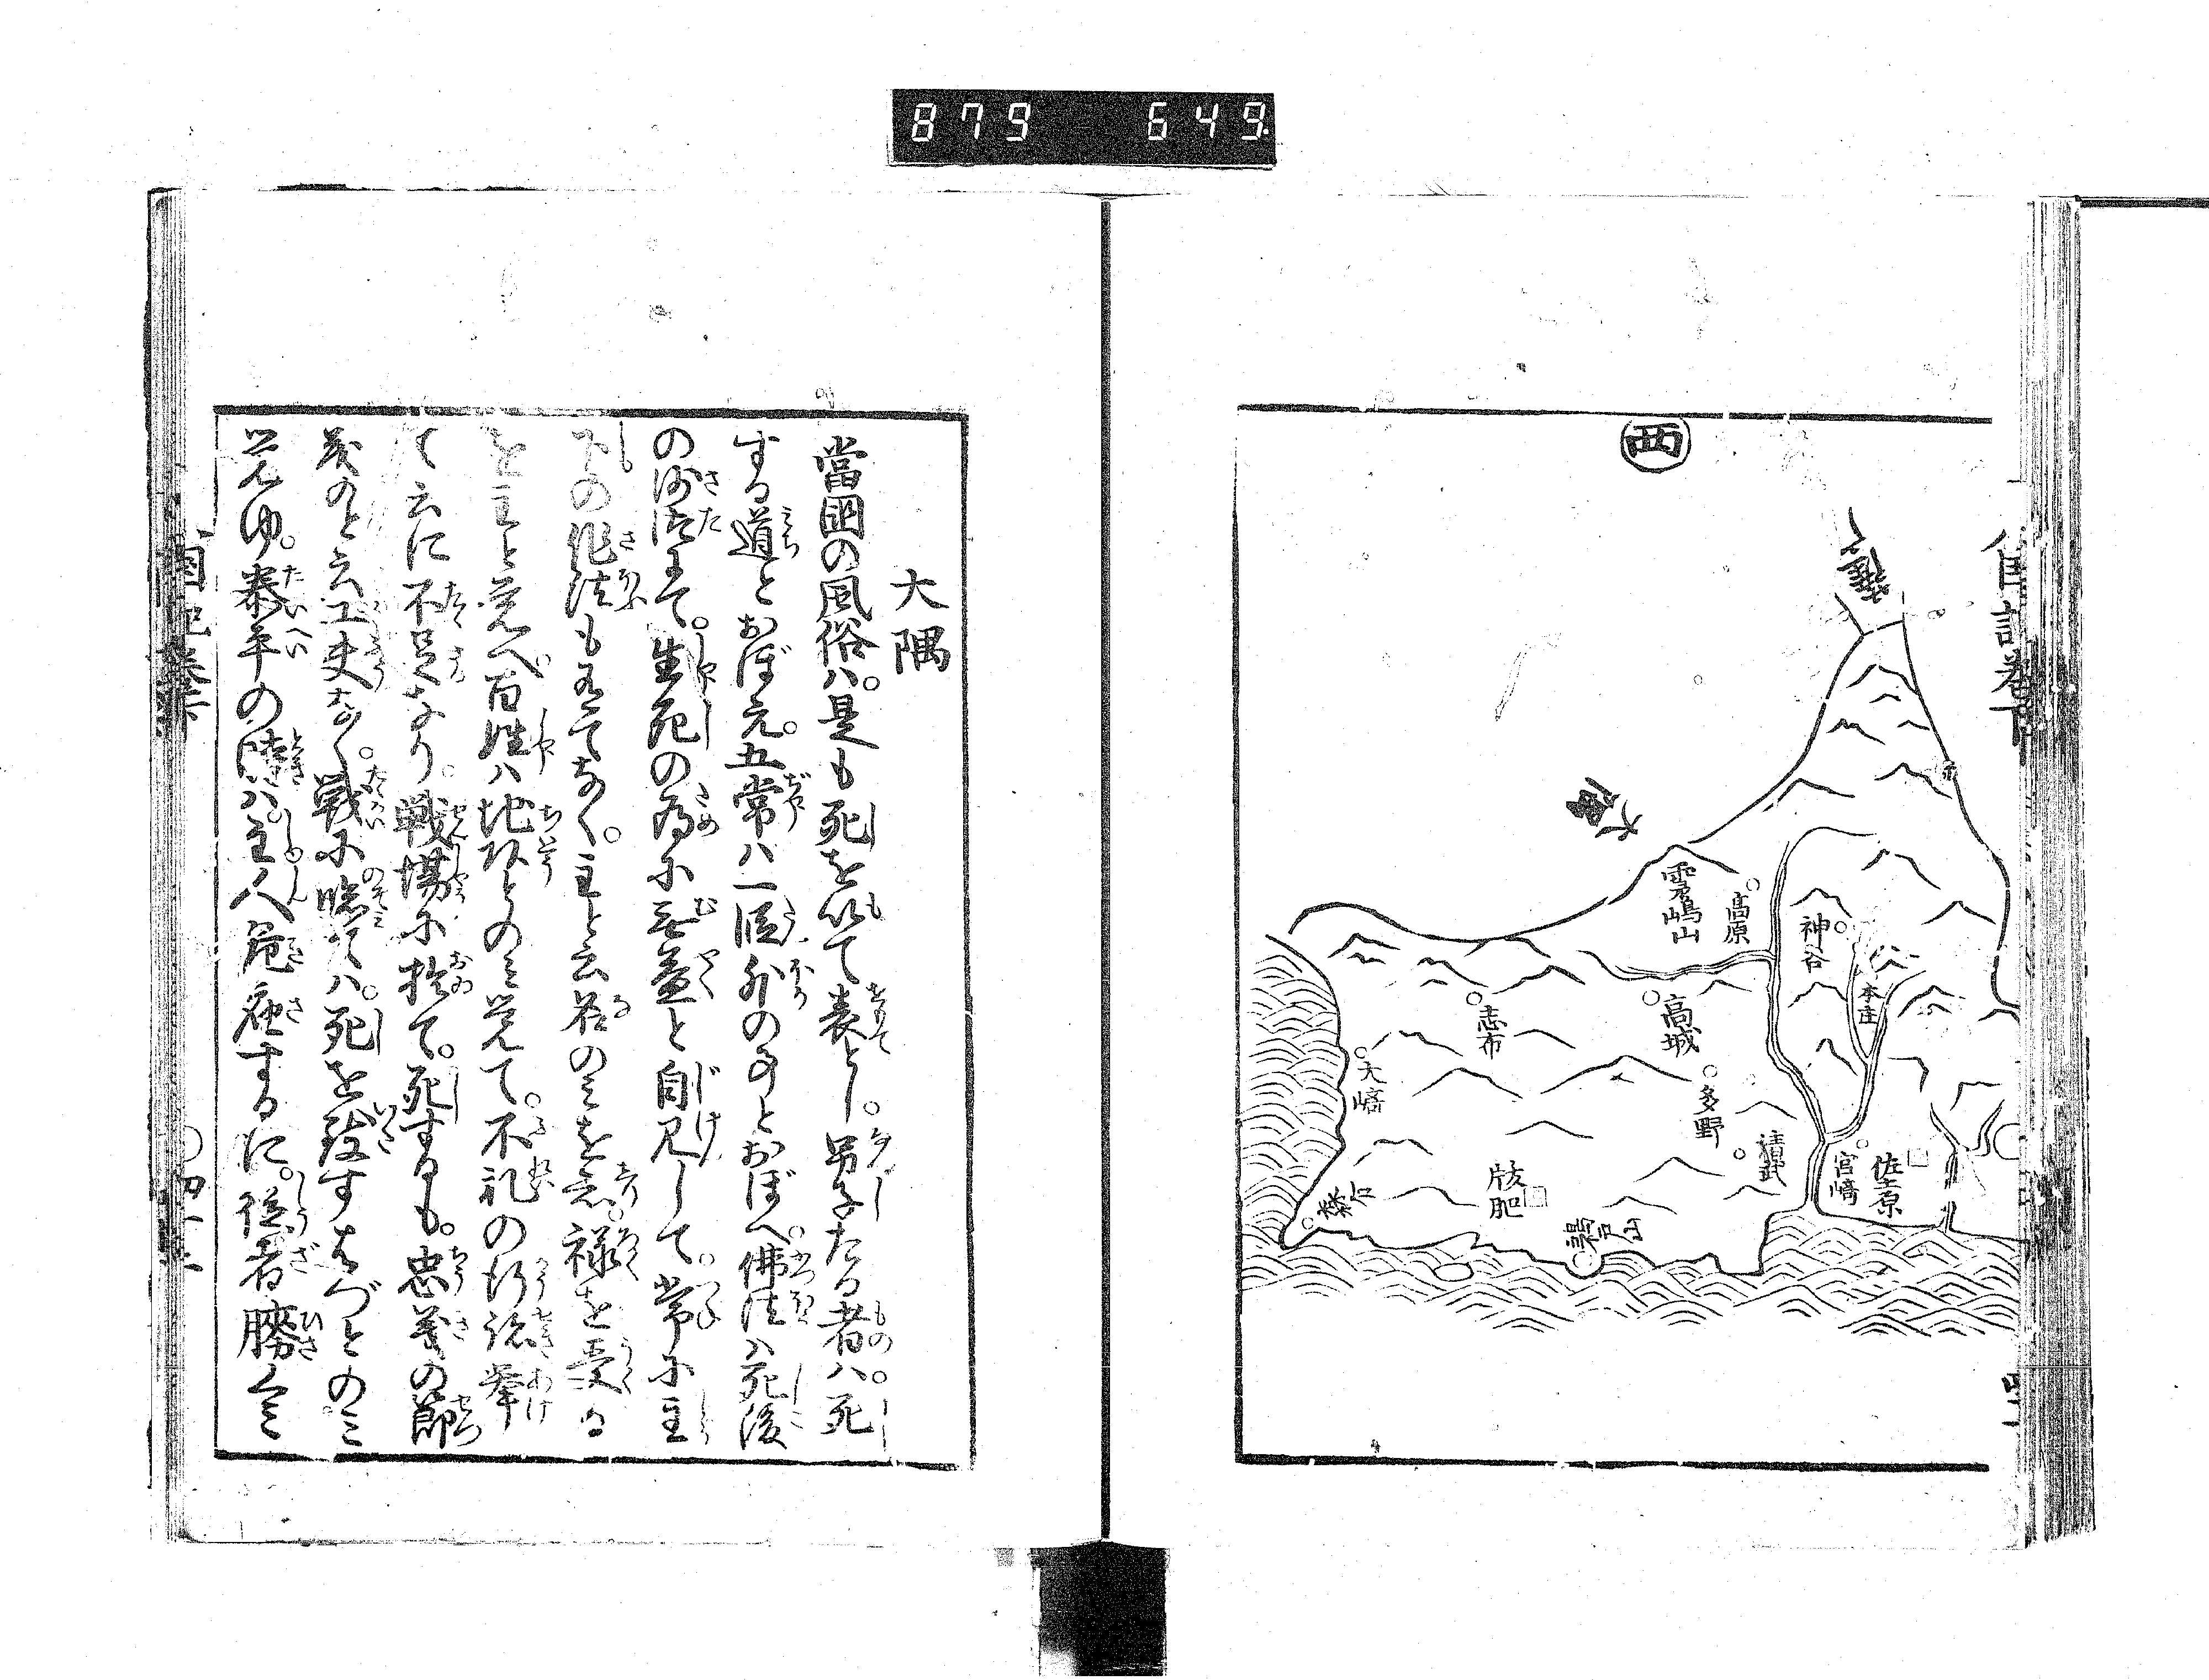 879 649
西
薩
大隅
雾嶋山
高原
神谷
本庄
志布
高城
大﨑
多野
清武
宮﨑
佐土原
飫肥
鵜戸山
大隅
當国の風俗ハ。是も死を以て表とし。男子たる者ハ。死
する道とおぼえ。五常ハ一段外の事とおぼへ。佛法ハ死後
の沙汰にて。生死の為に無益と自見して。常に主
下の作法も有てなく。主と云名のミを知。禄を受る
を主と覚へ。百姓ハ地頭とのミ覚て。不礼の行跡挙
て云に不足なり。戦場に於て。死するも。忠義の節
義のと云工夫なく。戦に臨てハ。死を致すはづとのミ
覚ゆ。泰平の時ハ。主人危座するに。從者膝くミ